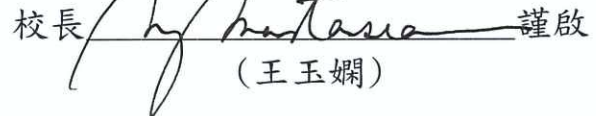 校長 謹啟
(王玉嫻)